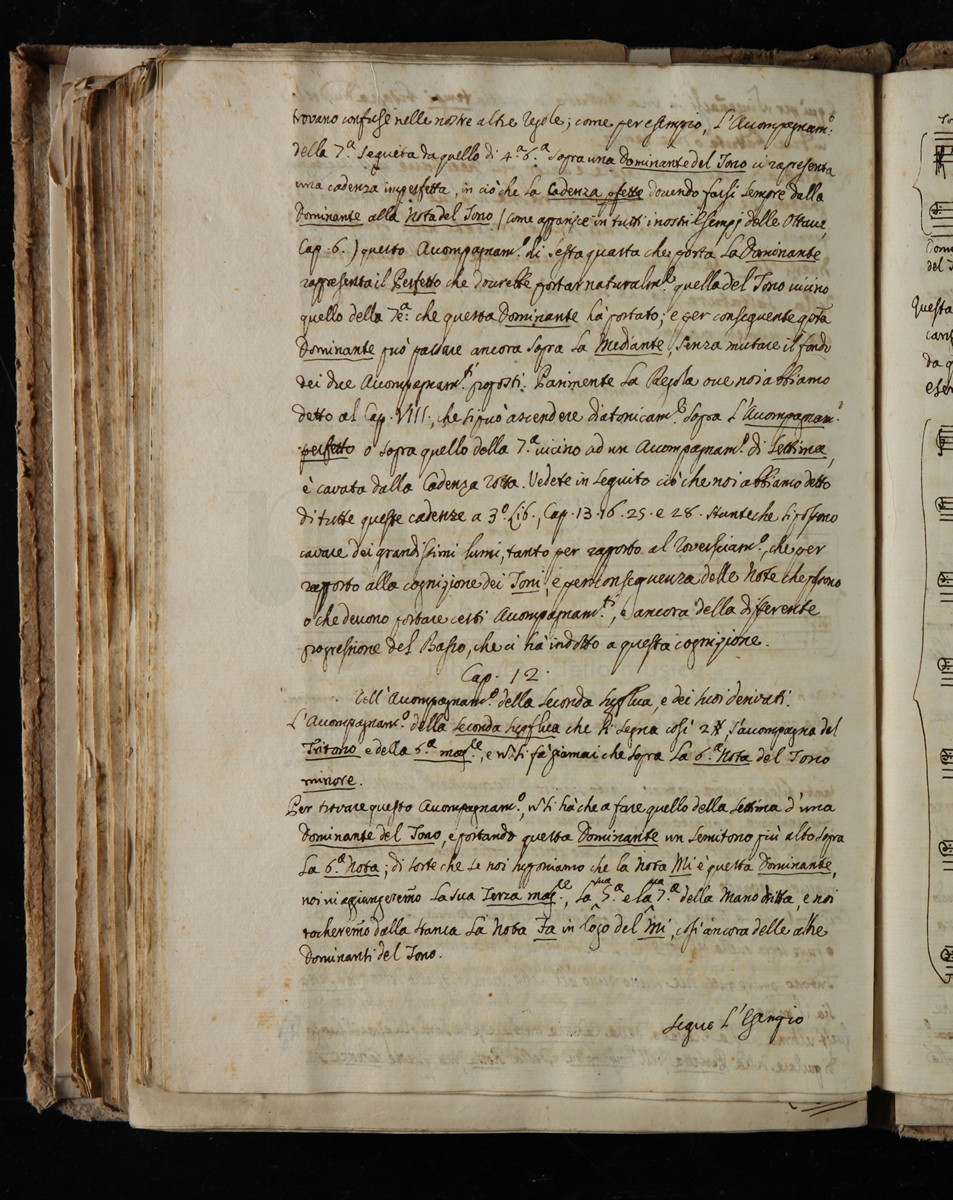 trovano confuse nelle nostre altre regole; come per esempio, L'Acompagnam.º
della 7.ª Seguita da quello di 4.ª 6.ª Sopra una Dominante del Tono ci rapresenta
una cadenza imperfetta, in ciò che La Cadenza pfetta dovendo farsi sempre dalla
Dominante alla Nota del Tono (come apparisce in tutti i nostri Esempj delle Ottave,
Cap. 6.) questo Acompagnam.º di Sesta quarta che porta La Dominante
rappresenta il Perfetto che dovrebbe portar naturalm.te quella del Tono vicino
quello della 7.ª che questa Dominante ha portato; e per conseguente qsta
Dominante può passare ancora sopra La Mediante, Senza mutare il fondo
dei due Acompagnam.ti proposti. Parimente La Regola ove noi abbiamo
detto al Cap. VIII, che si può ascendere diatonicam.te Sopra L'Acompagnam.º
perfetto o sopra quello della 7.ª vicino ad un Acompagnam.º di Settima,
è cavata dalla Cadenza rotta. Vedete in Seguito ciò che noi abbiamo detto
di tutte queste cadenze a 3.º Lib., Cap. 13. 16. 25. e 28. stanteche si possono
cavare dei grandissimi lumi, tanto per rapporto al roversciam.º, che per
rapporto alla cognizione dei Toni, e per conseguenza delle Note che possono
o che devono portare certi Acompagnam.ti, e ancora della differente
progressione del Basso, che ci ha indotto a questa cognizione.
Cap. 12.
Dell'Acompagnam.º della Seconda Supflua, e dei suoi derivati.
L'Acompagnam.º della Seconda Supflua che si Segna così 2#, s'acompagna del
Tritono e della 6.ª mag.re, e si fà giamai che sopra La 6.ª Nota del Tono
minore.
Per trovare questo Acompagnam.º, si hà che a fare quello della Settima d'una
Dominante del Tono, e portando questa Dominante un Semitono più alto sopra
La 6.ª Nota; di sorte che se noi suponiamo che la Nota Mi è questa Dominante,
noi vi agiungeremo La sua Terza mag.re, La sua 5.ª e la sua 7.ª della Mano dritta e noi
tocheremo dalla stanca La Nota Fa in logo del Mi, così ancora delle altre
Dominanti del Tono.
Segue L'Esempio
Questa
da q